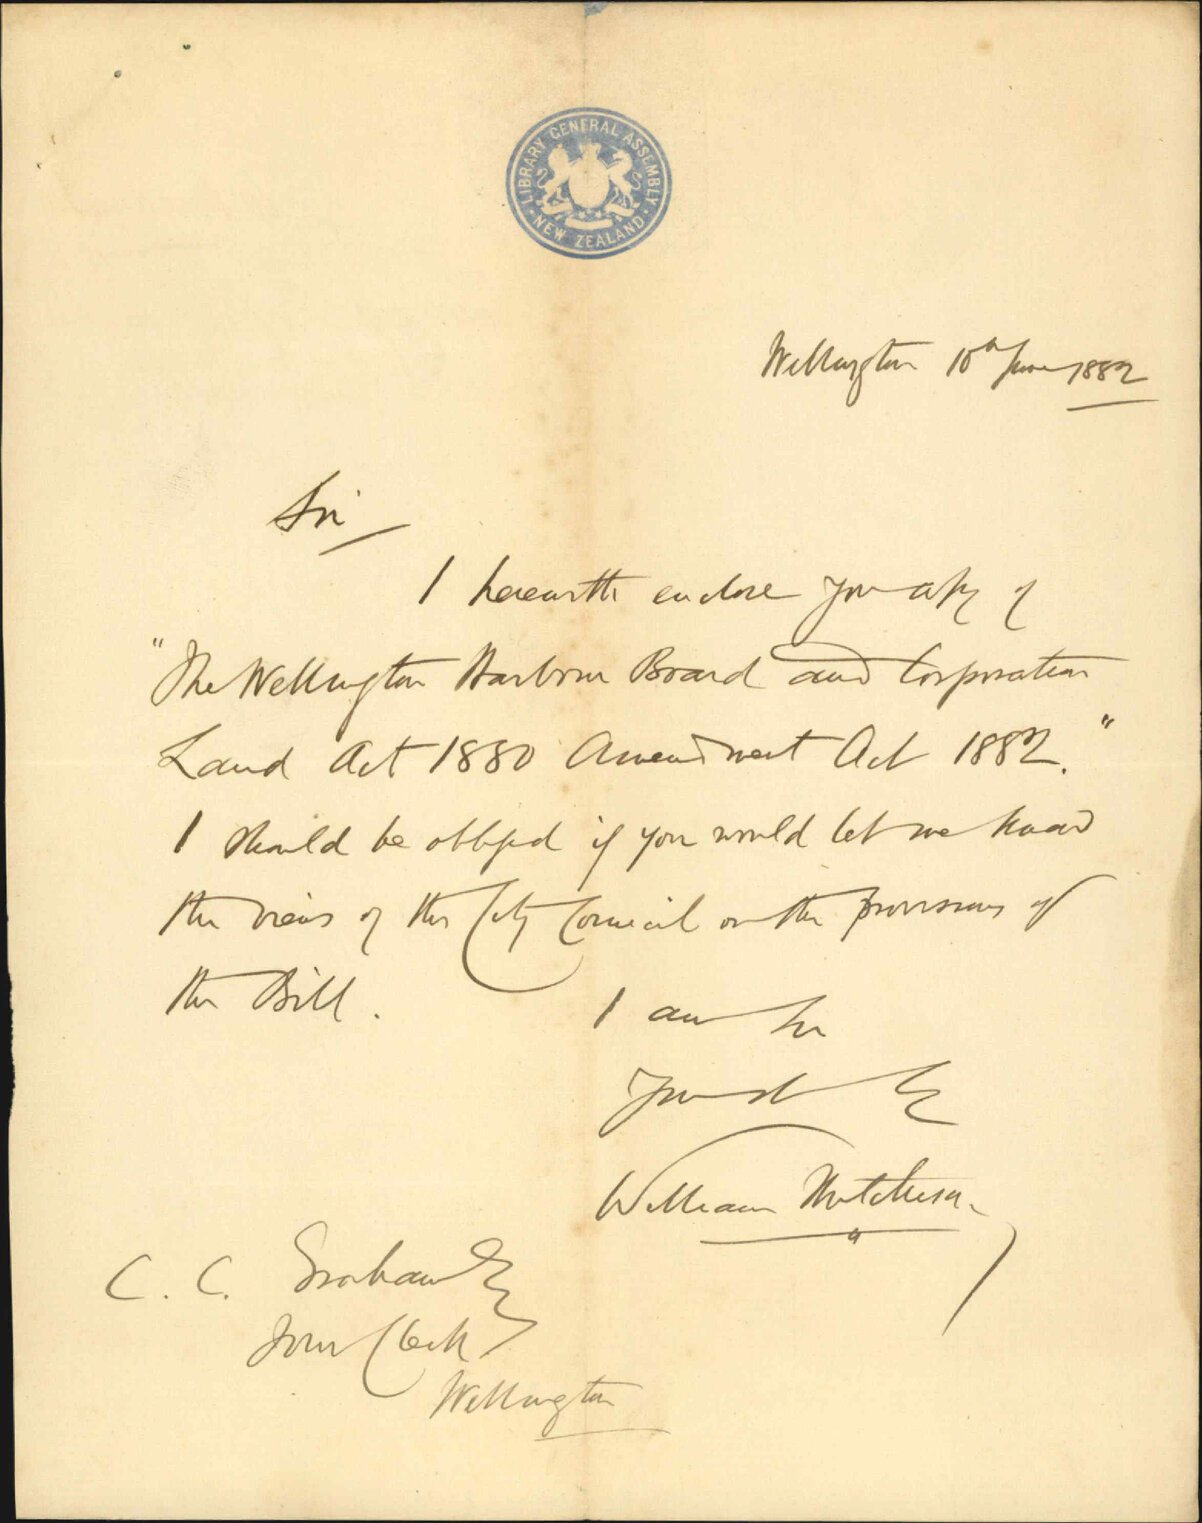 LIBRARY GENERAL ASSEMBLY
NEW ZEALAND
Wellington 10th June 1882
Sir
I herewith enclose you copy of
"The Wellington Harbour Board and Corporation
Land Act 1880 Amendment Act 1882."
I should be obliged if you would let me know
the views of the City Council on the provisions of
the Bill.
I am Sir
Yours
William Hutchison
C. C. Graham Esq
Town Clerk
Wellington